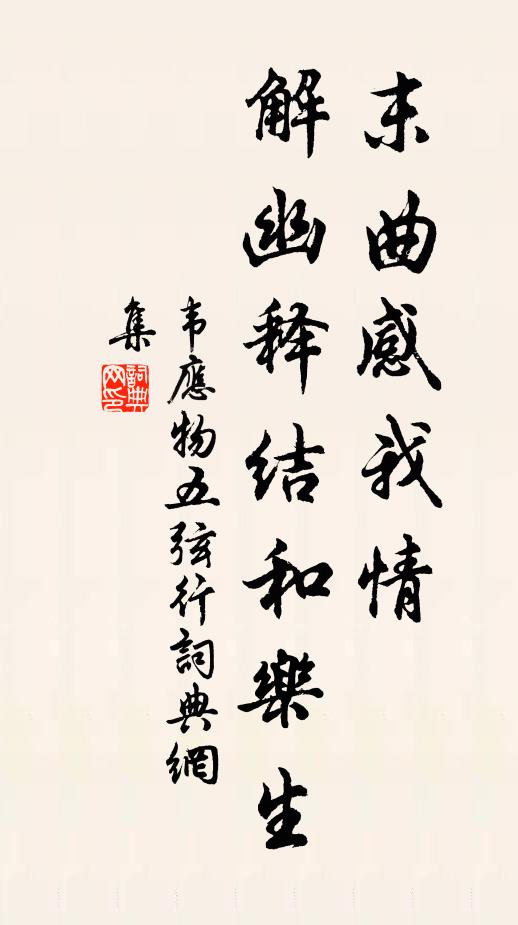 末曲感我情
解幽释结和樂生
韦應物五弦行詞典網
集
詞典
网印